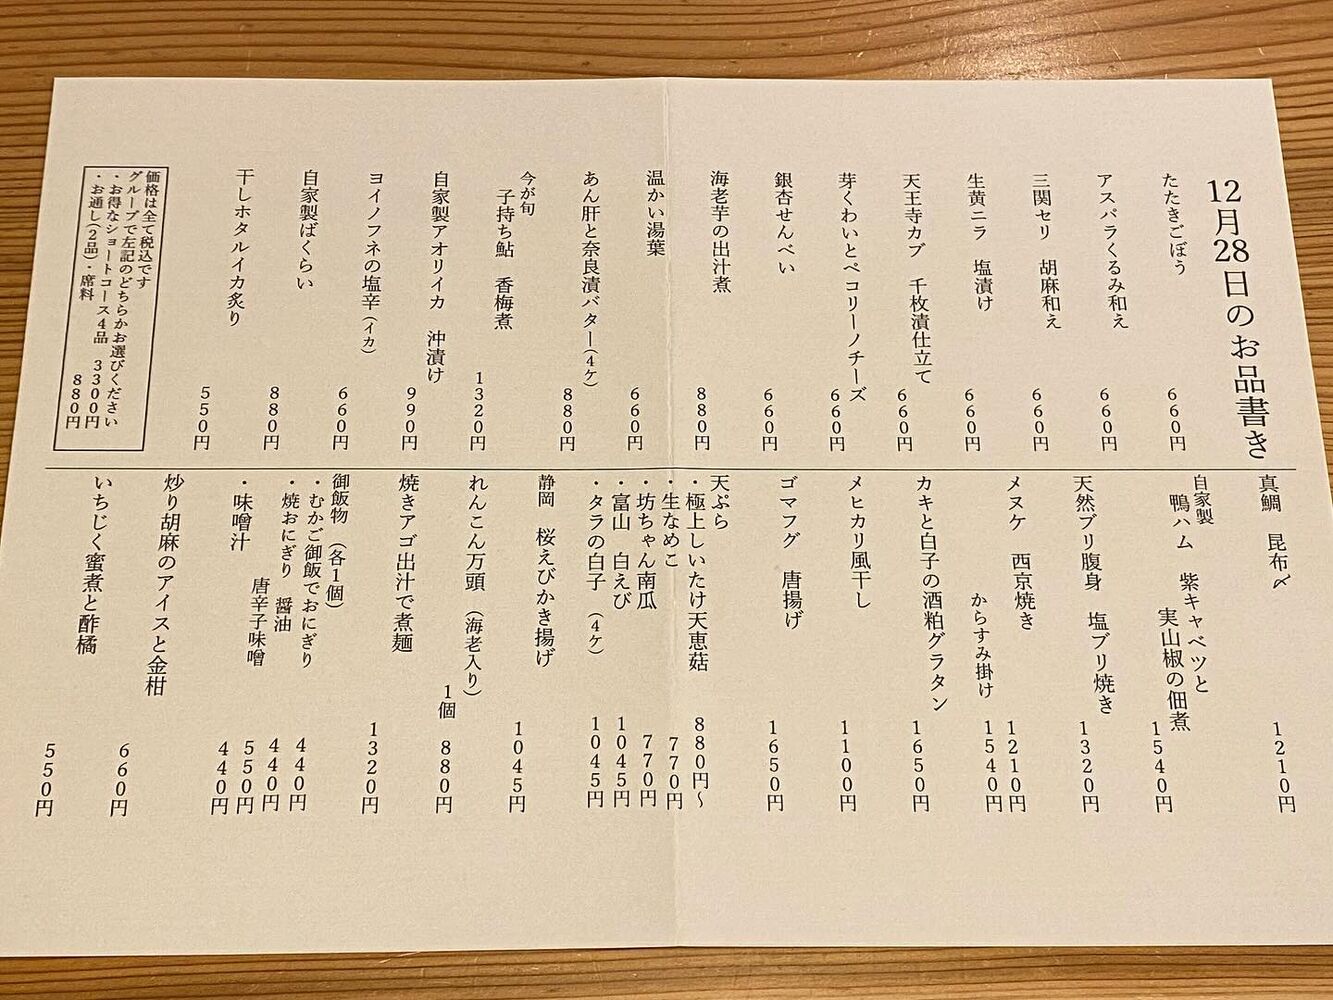 12月28日のお品書き
たたきごぼう 660円
アスパラくるみ和え 660円
三関セリ 胡麻和え 660円
生黄ニラ 塩漬け 660円
天王寺カブ 千枚漬仕立て 660円
芽くわいとペコリーノチーズ 660円
銀杏せんべい 660円
海老芋の出汁煮 880円
温かい湯葉 660円
あん肝と奈良漬バター(4ケ) 880円
今が旬
子持ち鮎 香梅煮 1320円
自家製アオリイカ 沖漬け 990円
ヨイノフネの塩辛(イカ) 660円
自家製ばくらい 880円
干しホタルイカ炙り 550円
価格は全て税込です
グループで左記のどちらかお選びください
・お得なショートコース4品 3300円
・お通し(2品)・席料 880円
真鯛 昆布〆 1210円
自家製
鴨ハム 紫キャベツと
実山椒の佃煮 1540円
天然ブリ腹身 塩ブリ焼き 1320円
メヌケ 西京焼き 1210円
からすみ掛け 1540円
カキと白子の酒粕グラタン 1650円
メヒカリ風干し 1100円
ゴマフグ 唐揚げ 1650円
天ぷら
・極上しいたけ天恵菇 880円〜
・生なめこ 770円
・坊ちゃん南瓜 770円
・富山 白えび 1045円
・タラの白子 (4ケ) 1045円
静岡 桜えびかき揚げ 1045円
れんこん万頭 (海老入り)
1個 880円
焼きアゴ出汁で煮麺 1320円
御飯物 (各1個)
・むかご御飯でおにぎり 440円
・焼おにぎり 醤油 440円
唐辛子味噌 550円
・味噌汁 440円
炒り胡麻のアイスと金柑 660円
いちじく蜜煮と酢橘 550円